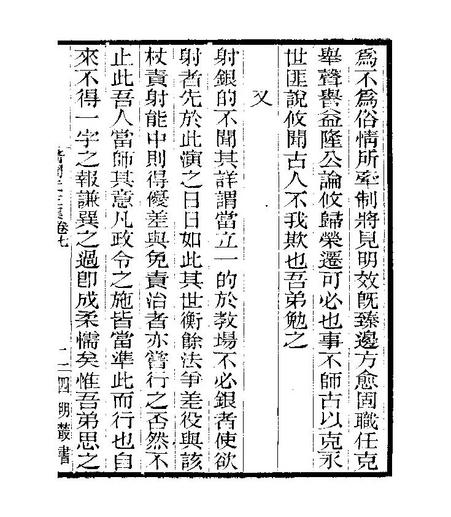 為不為俗情所牽制將見明效旣臻邊方愈固職任克
舉聲譽益隆公論攸歸榮遷可必也事不師古以克永
世匪說攸聞古人不我欺也吾弟勉之
又
射銀的不聞其詳謂當立一的於教場不必銀者使欲
射者先於此演之日日如此其世衡餘法爭差役與該
杖責射能中則得優差與免責治者亦嘗行之否然不
止此吾人當師其意凡政令之施皆當準此而行也自
來不得一字之報謙異之過卽成柔懦矣惟吾弟思之
卷七
四明叢書